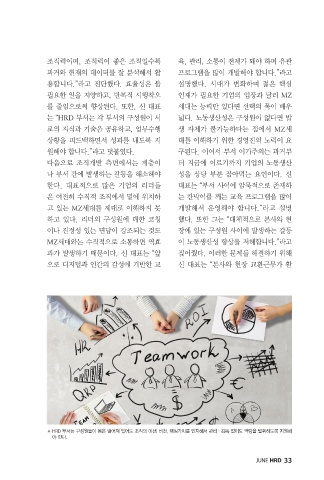 조직력이며, 조직력이 좋은 조직일수록
과거와 현재의 데이터를 잘 분석해서 활
용합니다."라고 진단했다. 효율성은 불
필요한 일을 지양하고, 반복적 시행착오
를 줄임으로써 향상된다. 또한, 신 대표
는 "HRD 부서는 각 부서의 구성원이 서
로의 지식과 기술은 공유하고, 업무수행
상황을 피드백하면서 성과를 내도록 지
원해야 합니다."라고 덧붙였다.
다음으로 조직개발 측면에서는 계층이
나 부서 간에 발생하는 갈등을 해소해야
한다. 대표적으로 많은 기업의 리더들
은 여전히 수직적 조직에서 벌에 위치하
고 있는 MZ세대를 제대로 이해하지 못
하고 있다. 리더의 구성원에 대한 코칭
이나 진정성 있는 면담이 강조되는 것도
MZ세대와는 수직적으로 소통하면 역효
과가 발생하기 때문이다. 신 대표는 "앞
으로 디지털과 인간의 감성에 기반한 교
육, 관리, 소통이 전제가 돼야 하며 유관
프로그램을 많이 개발해야 합니다."라고
설명했다. 시대가 변화하며 젊은 핵심
인재가 필요한 기업의 입장과 달리 MZ
세대는 능력만 있다면 선택의 폭이 매우
넓다. 노동생산성은 구성원이 없다면 발
생 자체가 불가능하다는 점에서 MZ세
대를 이해하기 위한 경영진의 노력이 요
구된다. 이어서 부서 이기주의는 과거부
터 지금에 이르기까지 기업의 노동생산
성을 상당 부분 갉아먹는 요인이다. 신
대표는 "부서 사이에 암묵적으로 존재하
는 칸막이를 깨는 교육 프로그램을 많이
개발해서 운영해야 합니다."라고 설명
했다. 또한 그는 "대체적으로 본사와 현
장에 있는 구성원 사이에 발생하는 갈등
이 노동생산성 향상을 저해합니다."라고
짚어줬다. 이러한 문제를 해결하기 위해
신 대표는 "본사와 현장 교환근무가 활
HR
ROI
Teamwork
QKP
$
€
JUNE HRD 33